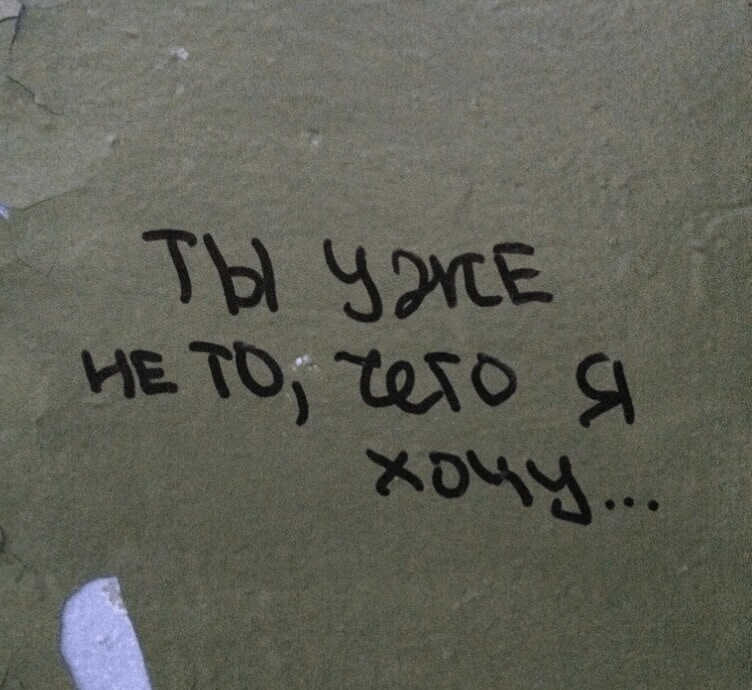 ты уже
не то, чего я
хочу...